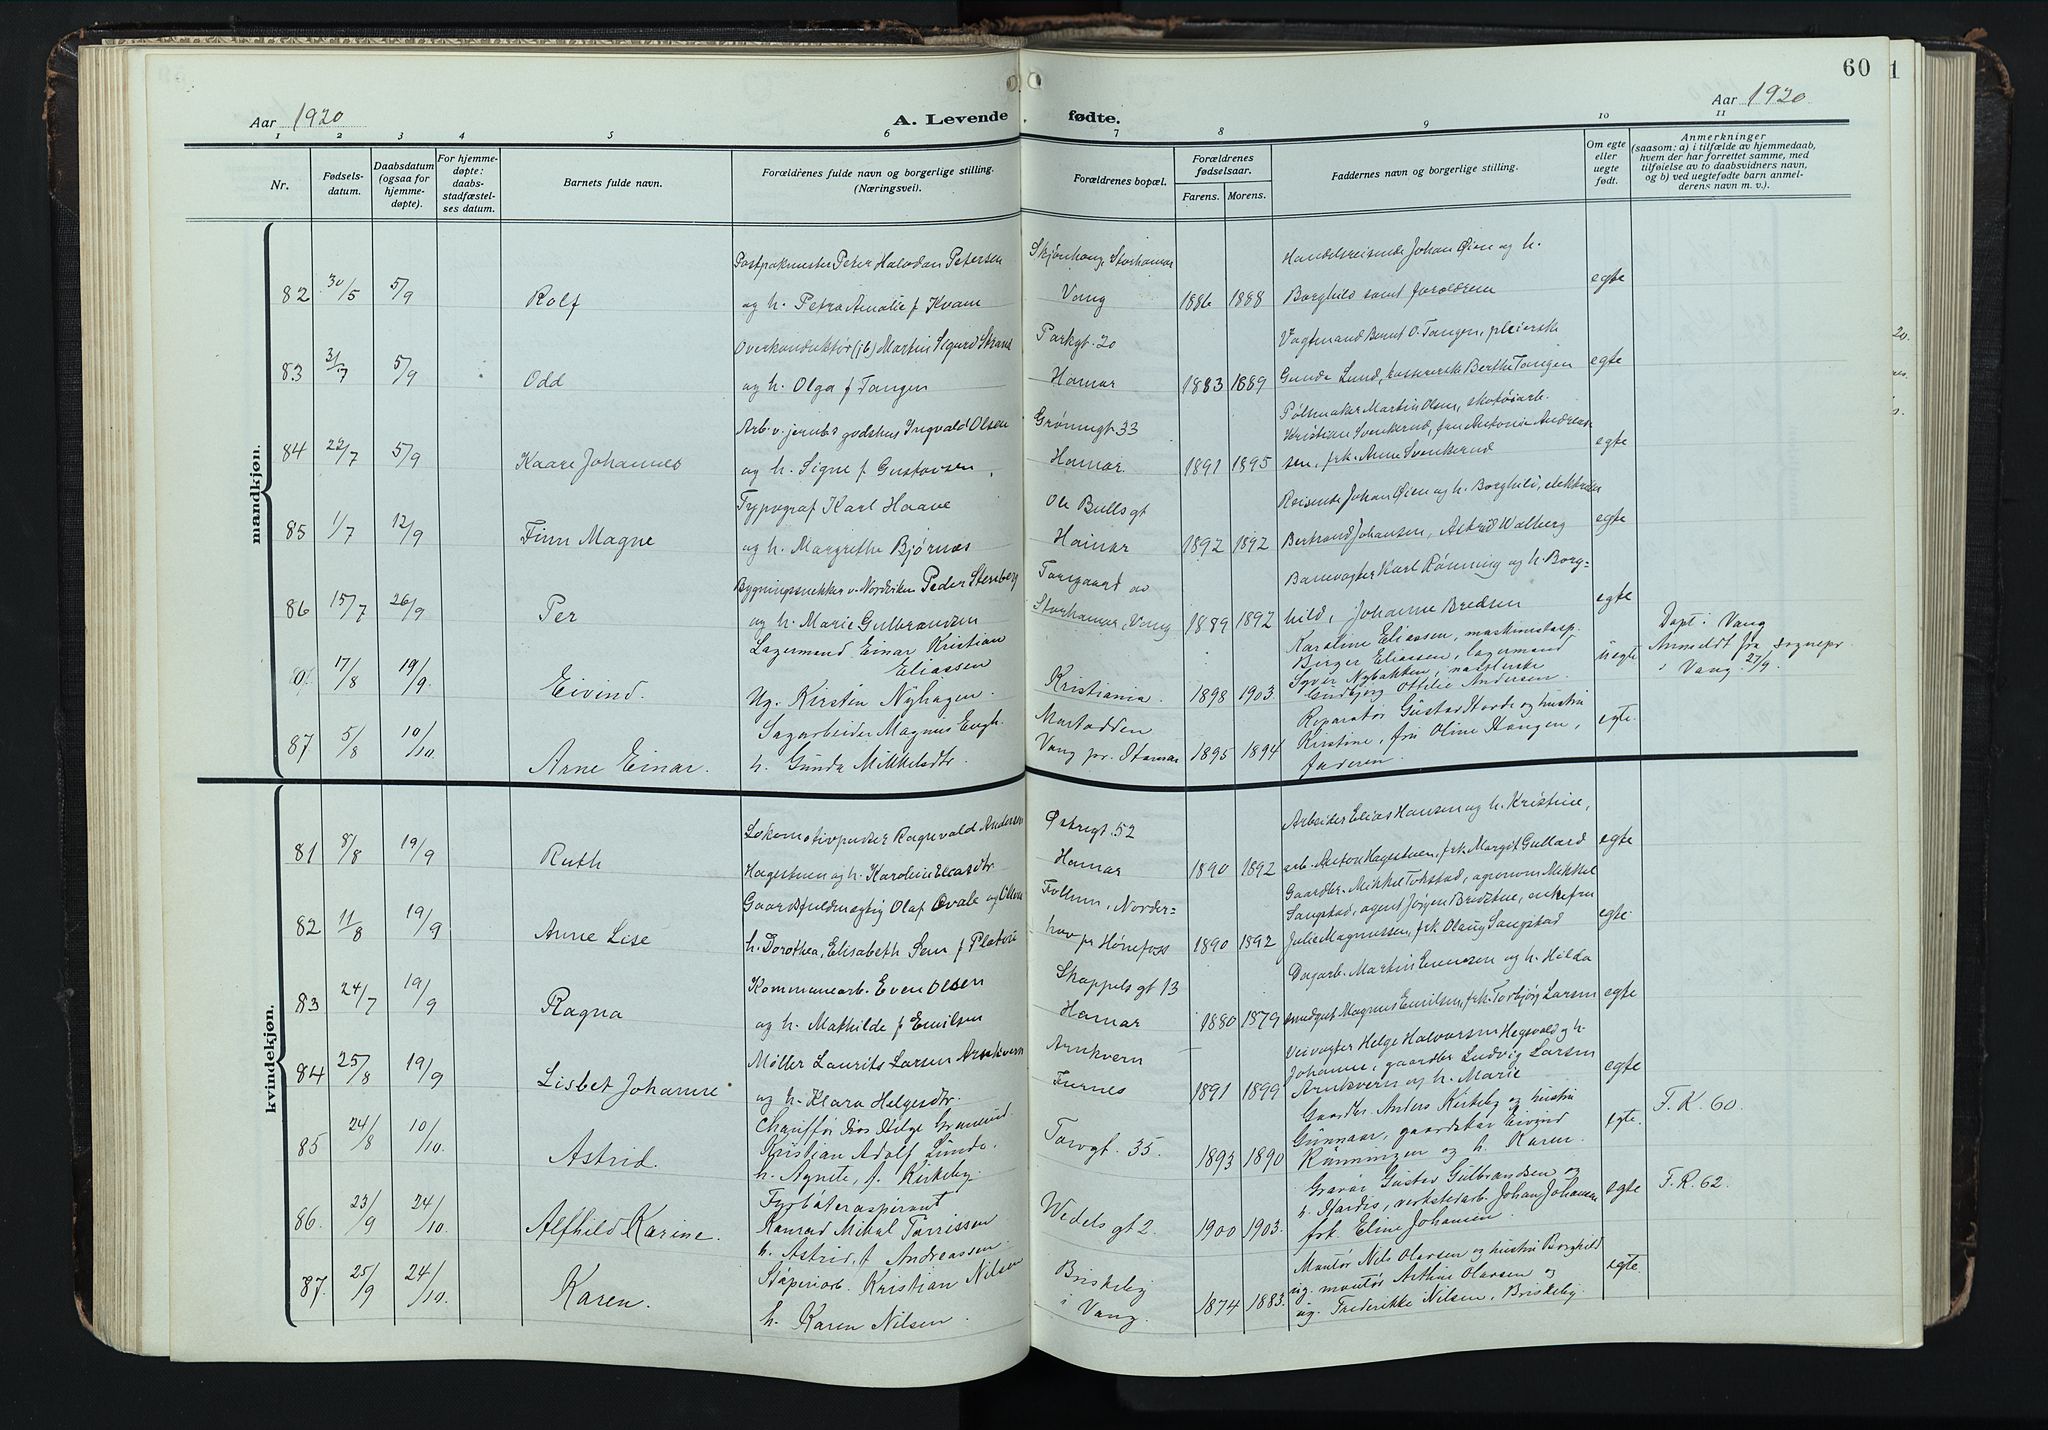 60
1
Aar 1920
A. Levende fødte.
Aar 1920
1 2 3 4 5 6 7 8 9 10 11
Nr.
Fødsels-
datum.
Daabsdatum
(ogsaa for
hjemme-
døpte).
For hjemme-
døpte:
daabs-
stadfæstel-
ses datum.
Barnets fulde navn.
Forældrenes fulde navn og borgerlige stilling.
(Næringsvei).
Forældrenes bopæl.
Forældrenes
fødselsaar.
Farens. Morens.
Faddernes navn og borgerlige stilling.
Om egte
eller
uegte
født.
Anmerkninger
(saasom: a) i tilfælde av hjemmedaab,
hvem der har forrettet samme, med
tilføielse av to daabsvidners navn,
og b) ved uegtefødte barn anmel-
derens navn m. v.).
mandkjøn.
82 30/5 5/9 Rolf
Postpakmester Peter Halvdan Petersen
og h. Petra Amalie f Kvam
Skjønhaug, Storhamar
Vang
1886 1888
Handelsreisende Johan Øien og h.
Borghild samt forældrene
egte
83 31/7 5/9 Odd
Overkonduktør (jb) Martin Sigurd Strand
og h. Olga f Tangen
Parkgt. 20
Hamar
1883 1889
Vagtmand Bernt O. Tangen, pleierske
Gunda Lund, kassererske Berthe Tangen
egte
84 22/7 5/9 Kaare Johannes
Arb. v. jernbs godshus Ingvald Olsen
og h. Signe f Gustavsen
Grønnegt. 33
Hamar
1891 1895
Pølsmaker Martin Olsen, skotøiarb.
Kristian Svenkerud, fru Antonie Andreas-
sen, frk. Anne Svenkerud
egte
85 1/7 12/9 Finn Magne
Typograf Karl Haave
og h. Margrethe Bjørnæs
Ole Bullsgt
Hamar
1892 1892
Reisende Johan Øien og h. Borghild, elektriker
Bertrand Johansen, Astrid Walberg
egte
86 15/7 26/9 Per
Bygningssnekker v. Nordviken Peder Stenberg
og h. Marie Gulbrandsen
Torsgaard av
Storhamar, Vang
1889 1892
Banevogter Karl Rønning og h. Borg-
hild, Johanne Bredsen
egte
17/8 19/9 Eivind.
Lagermand Einar Kristian
Eliassen
Ug. Kirsten Nyhagen.
Kristiania.
1898 1903.
Karoline Eliassen, maskinistasp.
Birger Eliassen, lagermand
Syver Nybakken,
Gudbjørg Ottilie Andersen.
uegte
Døpt i Vang
Anmeldt fra sognepr.
i Vang 27/9.
87 5/8 10/10. Arne Einar.
Sagarbeider Magnus Engh.
h. Gunda Mikkelsdtr.
Martodden
Vang pr. Hamar
1895 1894
Reparatør Gustav Horde og hustru
Kirstine, fru Oline Haugen,
faderen.
egte.
kvindekjøn.
81 8/8 19/9 Ruth
Lokomotivpudser Ragnvald Andersen
Hagestuen og h. Karoline Eliasdtr
Østregt. 52
Hamar
1890 1892
Arbeider Elias Hansen og h. Kristine,
arb. Anton Hagestuen, frk. Margit Gullord
egte
82 11/8 19/9 Anne Lise
Gaardsfuldmægtig Olaf Evale og
h. Dorothea, Elisabeth Sem f Platou
Follum, Norder-
hov pr Hønefoss
1890 1892
Gaardbr. Mikkel Tokstad, agronom Mikkel
Sangstad, agent Jørgen Bredstue, enkefru
Julie Magnussen, frk Olaug Sangstad
egte
83 24/7 19/9 Ragna
Kommunearb. Even Olsen
og h. Mathilde f Emilsen
Skappels gt 13
Hamar
1880 1879
Dagarb. Martin Evensen og h. Hilda
smedgut Magnus Emilsen, frk. Torbjørg Larsen
egte
84 25/8 19/9 Lisbet Johanne
Møller Laurits Larsen Arnkvern
og h. Klara Helgesdtr.
Arnkvern
Furnes
1891 1899
Veivogter Helge Halvorsen Hegsvold og h.
Johanne, gaardbr Ludvig Larsen
Arnkvern og h. Marie
egte
85 24/8 10/10. Astrid.
Kristian Adolf Lunde.
h. Agnete, f. Kirkeby.
Torvgt. 35.
1893 1890
Gaardbr. Anders Kirkeby og hustru
Gunnaar, gaardbr Eivind
Rønningen og h. Karen.
egte.
F. K. 60.
86. 23/9 24/10 Alfhild Karine.
Fyrbøteraspirant
Konrad Mikal Torrissen
h. Astrid, f. Andreassen.
Wedels gt 2.
1900 1903.
Gravør Gustav Gulbrandsen og
h. Hardis, verkstedarb. Johan Johansen
frk. Eline Johansen.
egte
F. R. 62.
87. 25/9 24/10. Karen.
Støperiarb. Kristian Nilsen
h. Karen Nilsen.
Briskeby
i Vang.
1874 1883.
Montør Nils Olavsen og hustru Borghild
ug. montør Arthur Olavsen og
ug. Frederikke Nilsen, Briskeby.
egte.